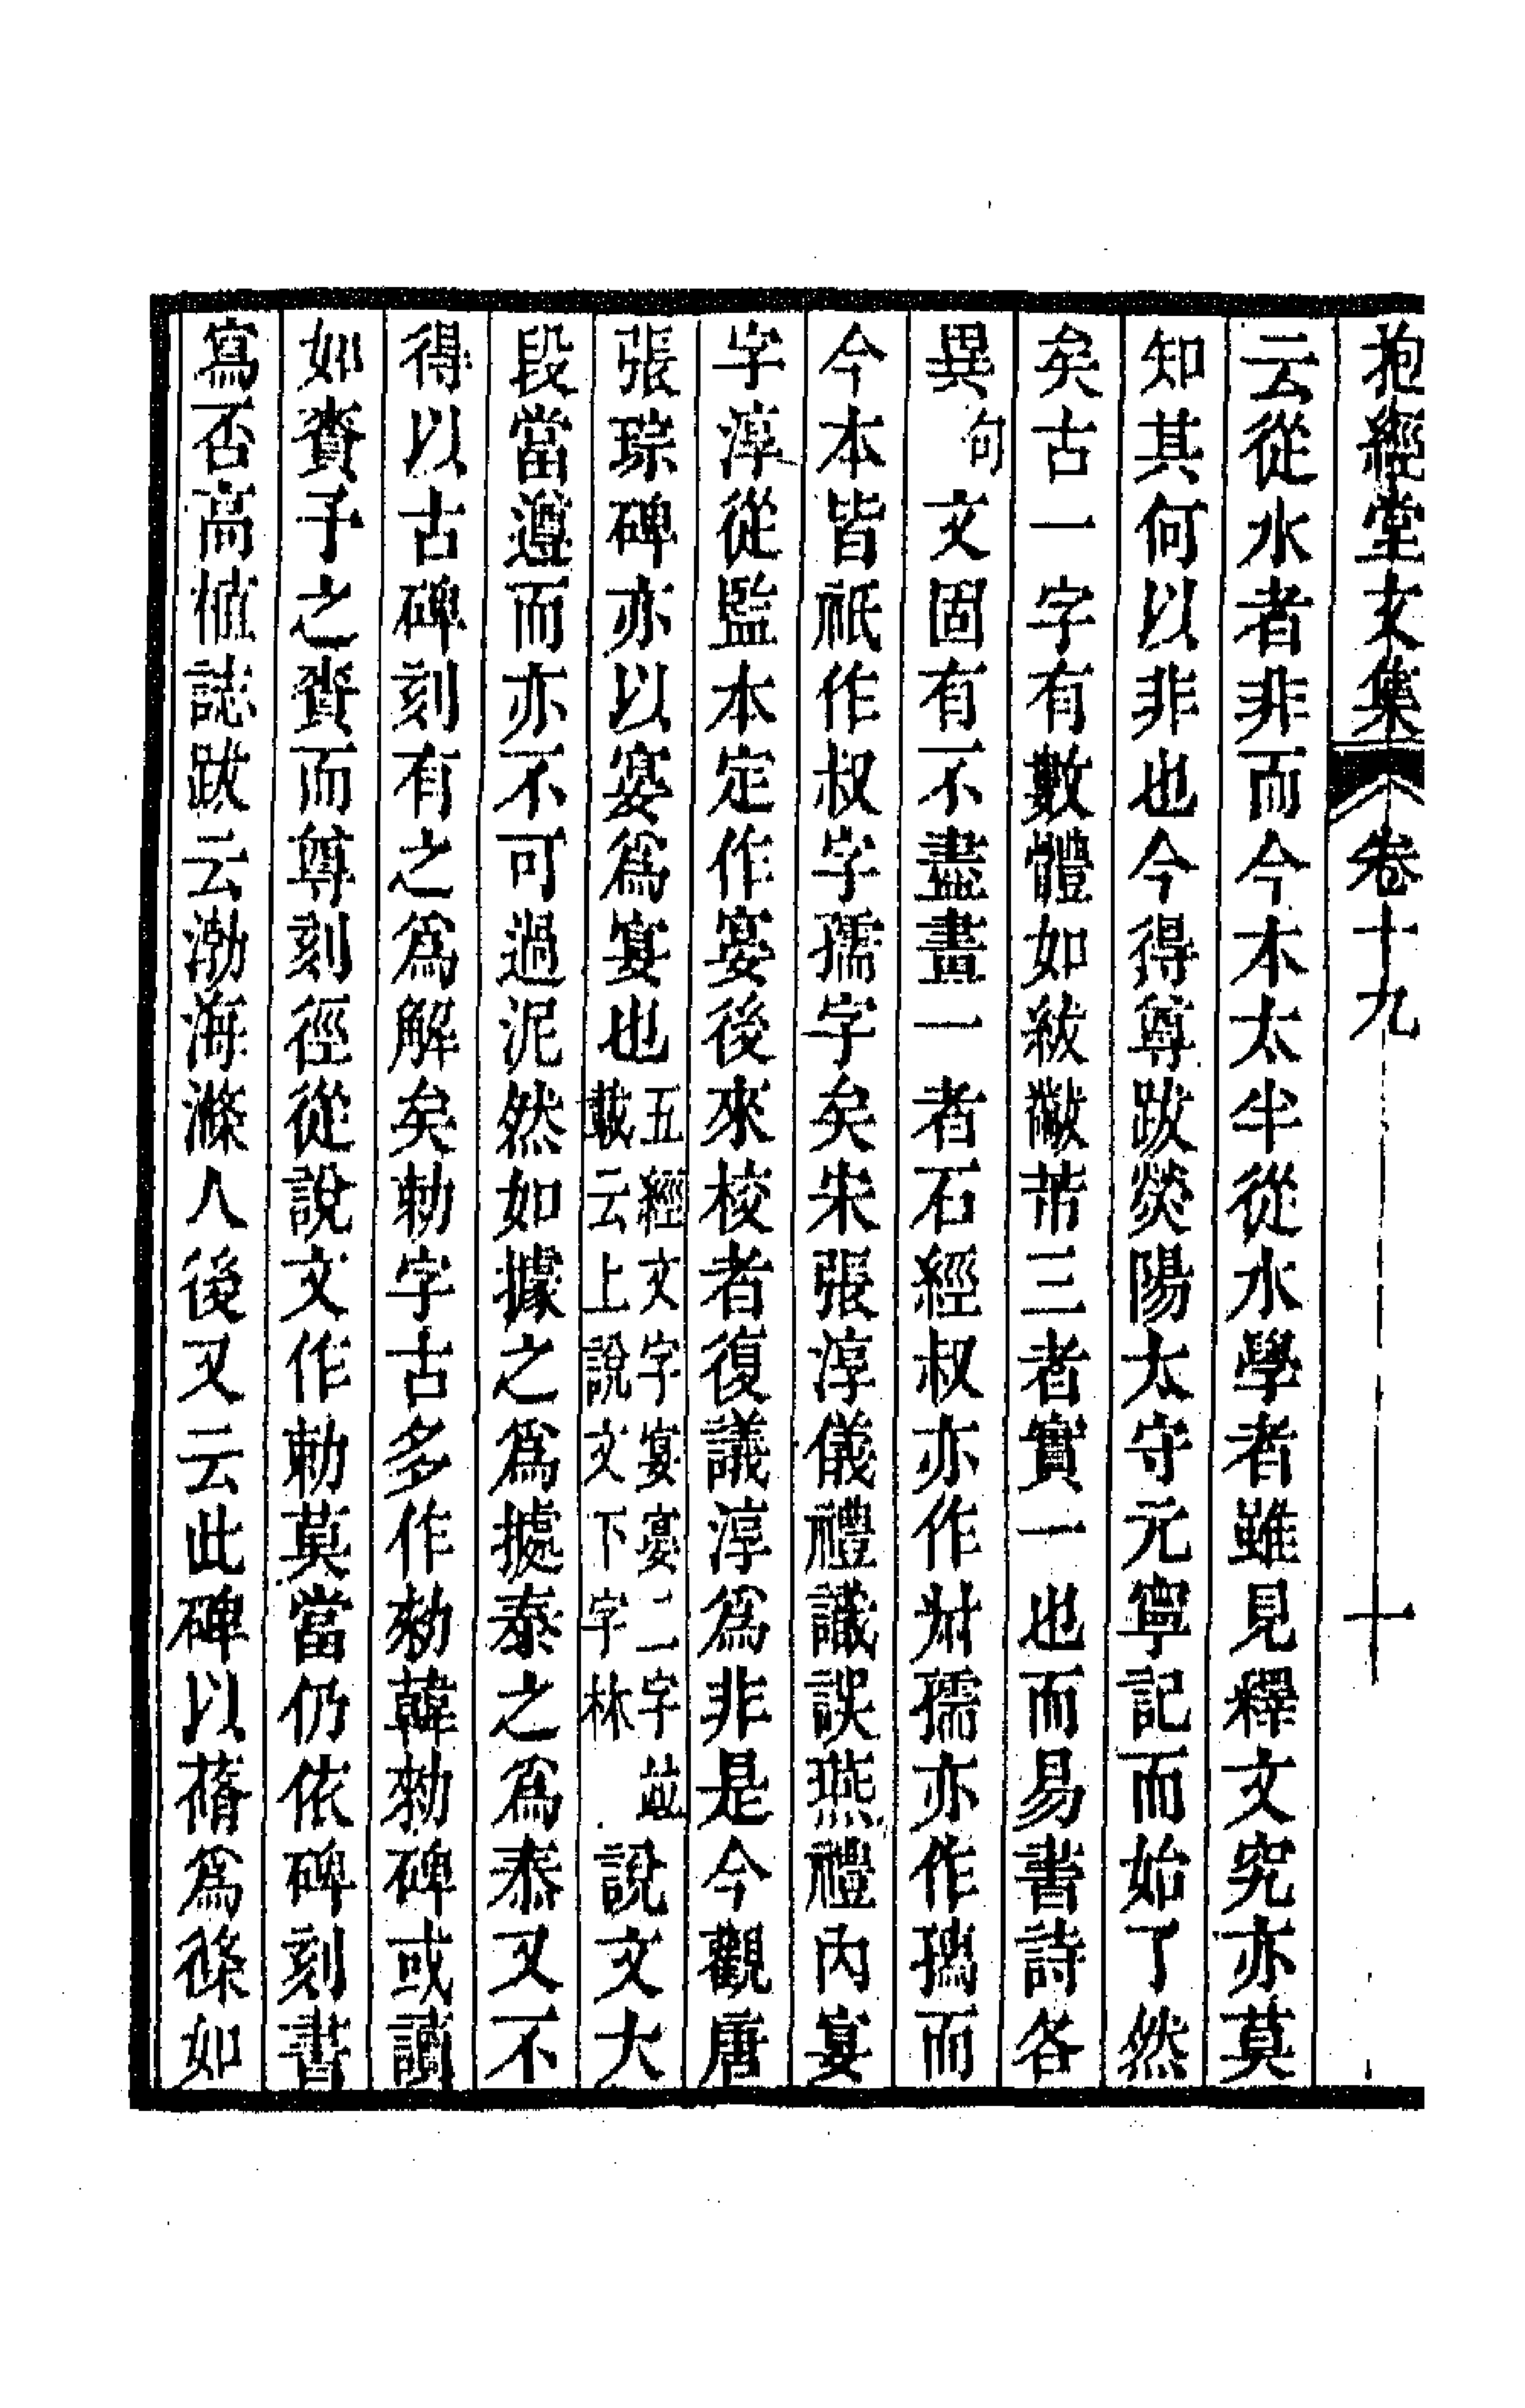 抱經堂文集 卷十九 十
云從水者非而今本太半從水學者雖見釋文究亦莫
知其何以非也今得尊跋熒陽太守元寧記而始了然
矣古一字有數體如紱黻芾三者實一也而易書詩各
異句文固有不盡畫一者石經叔亦作尗孺亦作㺃而
今本皆祇作叔字孺字矣宋張淳儀禮識誤燕禮內宴
字淳從監本定作宴後來校者復議淳爲非是今觀唐
張琮碑亦以宴爲宴也五經文字宴宴二字並
載云上說文下字林說文大
段當遵而亦不可過泥然如據之爲據泰之爲泰又不
得以古碑刻有之爲解矣勅字古多作勑韓勑碑或讀
如賚予之賚而尊刻徑從說文作勅莫當仍依碑刻書
寫否高植誌跋云渤海滌人後又云此碑以蓨爲滌如